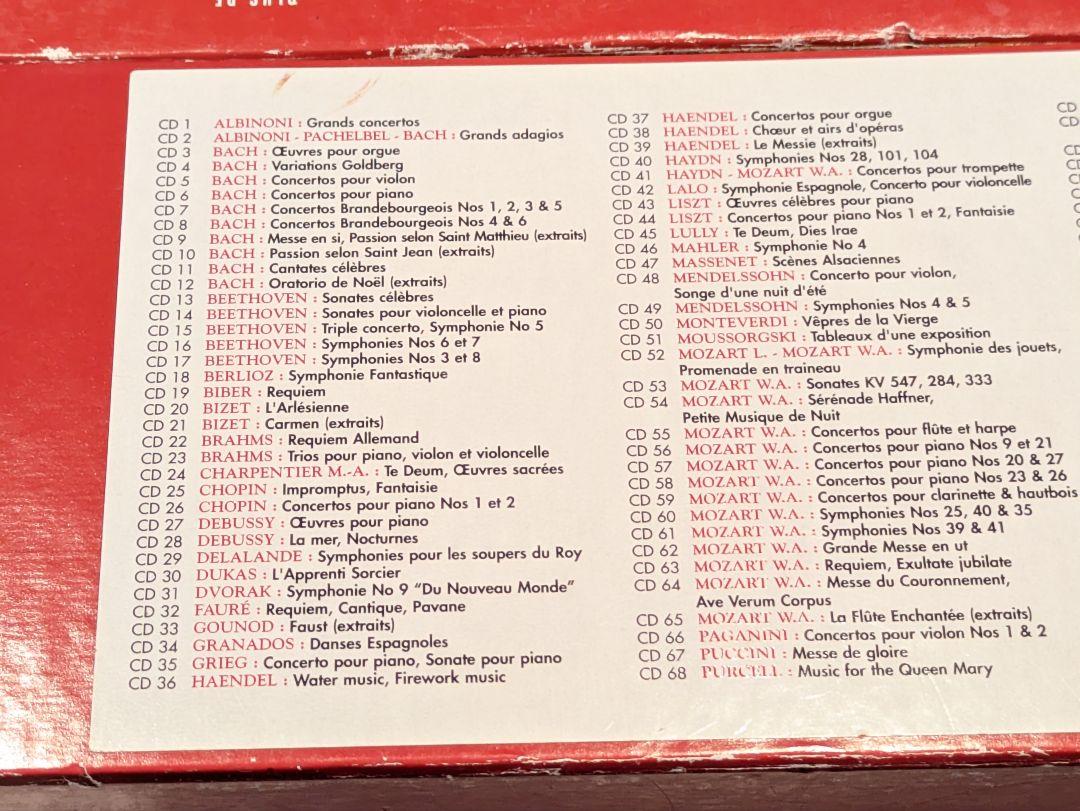 CD 1 ALBINONI : Grands concertos
CD 2 ALBINONI - PACHELBEL - BACH : Grands adagios
CD 3 BACH : Œuvres pour orgue
CD 4 BACH : Variations Goldberg
CD 5 BACH : Concertos pour violon
CD 6 BACH : Concertos pour piano
CD 7 BACH : Concertos Brandebourgeois Nos 1, 2, 3 & 5
CD 8 BACH : Concertos Brandebourgeois Nos 4 & 6
CD 9 BACH : Messe en si, Passion selon Saint Matthieu (extraits)
CD 10 BACH : Passion selon Saint Jean (extraits)
CD 11 BACH : Cantates célèbres
CD 12 BACH : Oratorio de Noël (extraits)
CD 13 BEETHOVEN : Sonates célèbres
CD 14 BEETHOVEN : Sonates pour violoncelle et piano
CD 15 BEETHOVEN : Triple concerto, Symphonie No 5
CD 16 BEETHOVEN : Symphonies Nos 6 et 7
CD 17 BEETHOVEN : Symphonies Nos 3 et 8
CD 18 BERLIOZ : Symphonie Fantastique
CD 19 BIBER : Requiem
CD 20 BIZET : L'Arlésienne
CD 21 BIZET : Carmen (extraits)
CD 22 BRAHMS : Requiem Allemand
CD 23 BRAHMS : Trios pour piano, violon et violoncelle
CD 24 CHARPENTIER M.-A. : Te Deum, Œuvres sacrées
CD 25 CHOPIN : Impromptus, Fantaisie
CD 26 CHOPIN : Concertos pour piano Nos 1 et 2
CD 27 DEBUSSY : Œuvres pour piano
CD 28 DEBUSSY : La mer, Nocturnes
CD 29 DELALANDE : Symphonies pour les soupers du Roy
CD 30 DUKAS : L'Apprenti Sorcier
CD 31 DVORAK : Symphonie No 9 "Du Nouveau Monde"
CD 32 FAURÉ : Requiem, Cantique, Pavane
CD 33 GOUNOD : Faust (extraits)
CD 34 GRANADOS : Danses Espagnoles
CD 35 GRIEG : Concerto pour piano, Sonate pour piano
CD 36 HAENDEL : Water music, Firework music
CD 37 HAENDEL : Concertos pour orgue
CD 38 HAENDEL : Chœur et airs d'opéras
CD 39 HAENDEL : Le Messie (extraits)
CD 40 HAYDN : Symphonies Nos 28, 101, 104
CD 41 HAYDN - MOZART W.A. : Concertos pour trompette
CD 42 LALO : Symphonie Espagnole, Concerto pour violoncelle
CD 43 LISZT : Œuvres célèbres pour piano
CD 44 LISZT : Concertos pour piano Nos 1 et 2, Fantaisie
CD 45 LULLY : Te Deum, Dies Irae
CD 46 MAHLER : Symphonie No 4
CD 47 MASSENET : Scènes Alsaciennes
CD 48 MENDELSSOHN : Concerto pour violon,
Songe d'une nuit d'été
CD 49 MENDELSSOHN : Symphonies Nos 4 & 5
CD 50 MONTEVERDI : Vêpres de la Vierge
CD 51 MOUSSORGSKI : Tableaux d'une exposition
CD 52 MOZART L. - MOZART W.A. : Symphonie des jouets,
Promenade en traineau
CD 53 MOZART W.A. : Sonates KV 547, 284, 333
CD 54 MOZART W.A. : Sérénade Haffner,
Petite Musique de Nuit
CD 55 MOZART W.A. : Concertos pour flûte et harpe
CD 56 MOZART W.A. : Concertos pour piano Nos 9 et 21
CD 57 MOZART W.A. : Concertos pour piano Nos 20 & 27
CD 58 MOZART W.A. : Concertos pour piano Nos 23 & 26
CD 59 MOZART W.A. : Concertos pour clarinette & hautbois
CD 60 MOZART W.A. : Symphonies Nos 25, 40 & 35
CD 61 MOZART W.A. : Symphonies Nos 39 & 41
CD 62 MOZART W.A. : Grande Messe en ut
CD 63 MOZART W.A. : Requiem, Exultate jubilate
CD 64 MOZART W.A. : Messe du Couronnement,
Ave Verum Corpus
CD 65 MOZART W.A. : La Flûte Enchantée (extraits)
CD 66 PAGANINI : Concertos pour violon Nos 1 & 2
CD 67 PUCCINI : Messe de gloire
CD 68 PURCELL : Music for the Queen Mary
CD